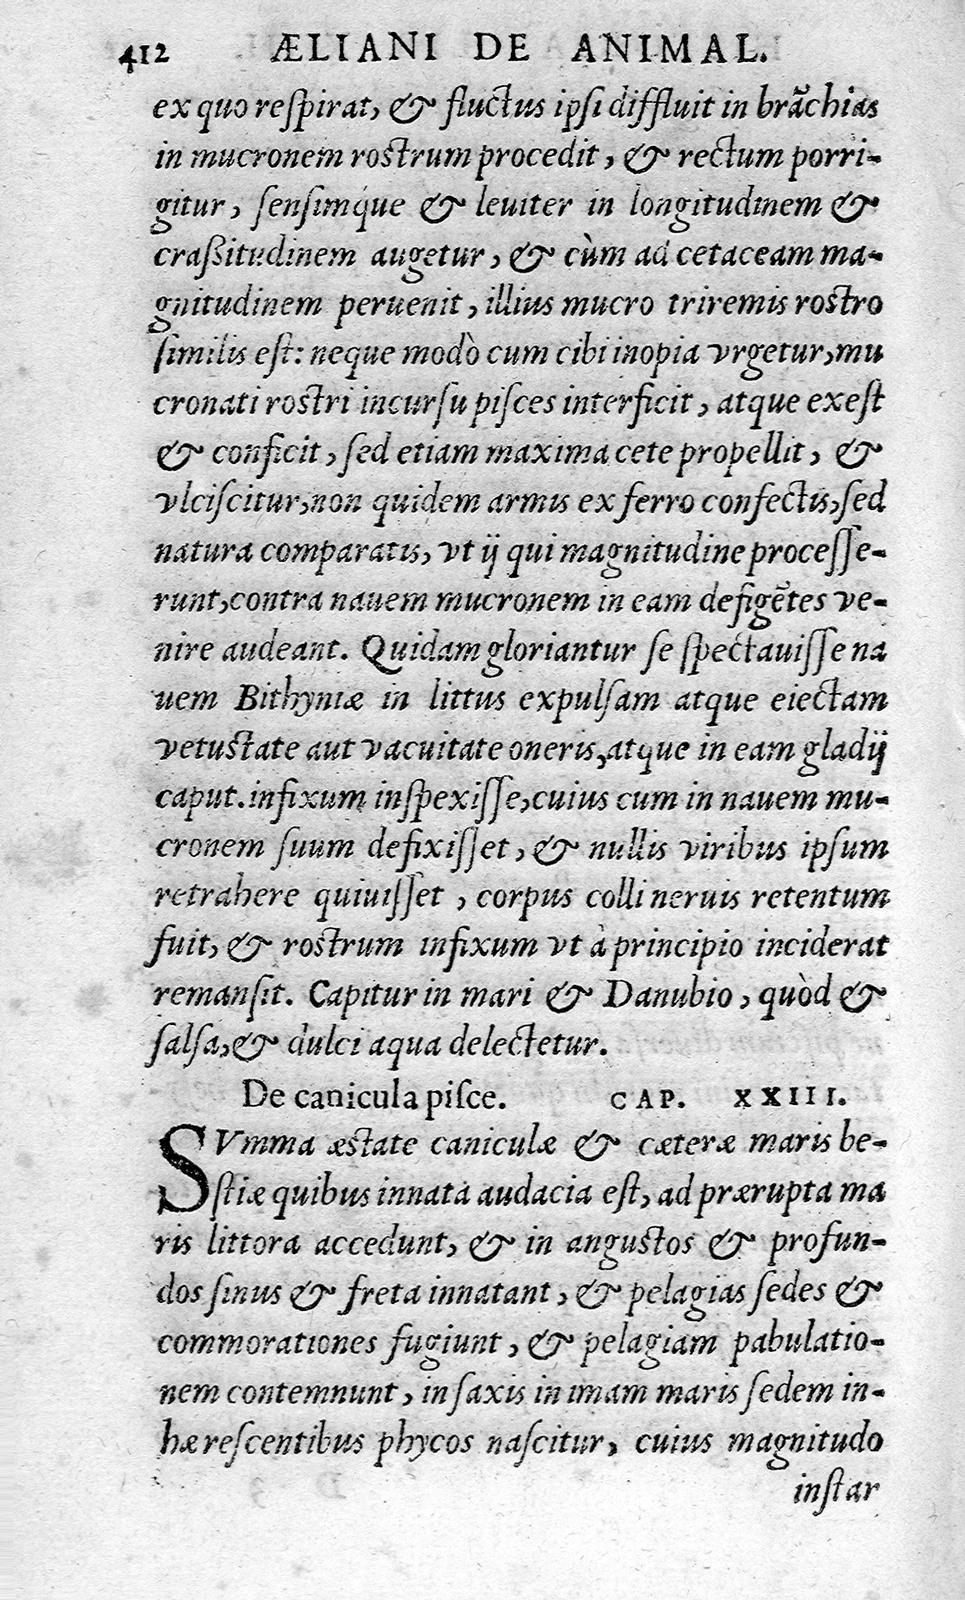 412 ÆLIANI DE ANIMAL.
ex quo reſpirat, & fluctus ipſi diffluit in brãchias
in mucronem rostrum procedit, & rectum porri-
gitur, ſenſimq́ue & leuiter in longitudinem &
craßitudinem augetur, & cùm ad cetaceam ma-
gnitudinem peruenit, illius mucro triremis rostro
ſimilis eſt: neque modò cum cibi inopia vrgetur, mu
cronati rostri incurſu piſces interficit, atque exeſt
& conficit, ſed etiam maxima cete propellit, &
vlciſcitur, non quidem armis ex ferro confectis, ſed
natura comparatis, vt ij qui magnitudine proceſſe-
runt, contra nauem mucronem in eam defigẽtes ve-
nire audeant. Quidam gloriantur ſe ſpectauiſſe na
uem Bithyniæ in littus expulſam atque eiectam
vetustate aut vacuitate oneris, atque in eam gladij
caput. infixum inſpexiſſe, cuius cum in nauem mu-
cronem ſuum defixiſſet, & nullis viribus ipſum
retrahere quiuiſſet, corpus colli neruis retentum
fuit, & rostrum infixum vt à principio inciderat
remanſit. Capitur in mari & Danubio, quòd &
ſalſa, & dulci aqua delectetur.
De canicula piſce. CAP. XXIII.
SVmma æstate caniculæ & cæteræ maris be-
ſtiæ quibus innata audacia eſt, ad prærupta ma
ris littora accedunt, & in angustos & profun-
dos ſinus & freta innatant, & pelagias ſedes &
commorationes fugiunt, & pelagiam pabulatio-
nem contemnunt, in ſaxis in imam maris ſedem in-
hæreſcentibus phycos naſcitur, cuius magnitudo
inſtar